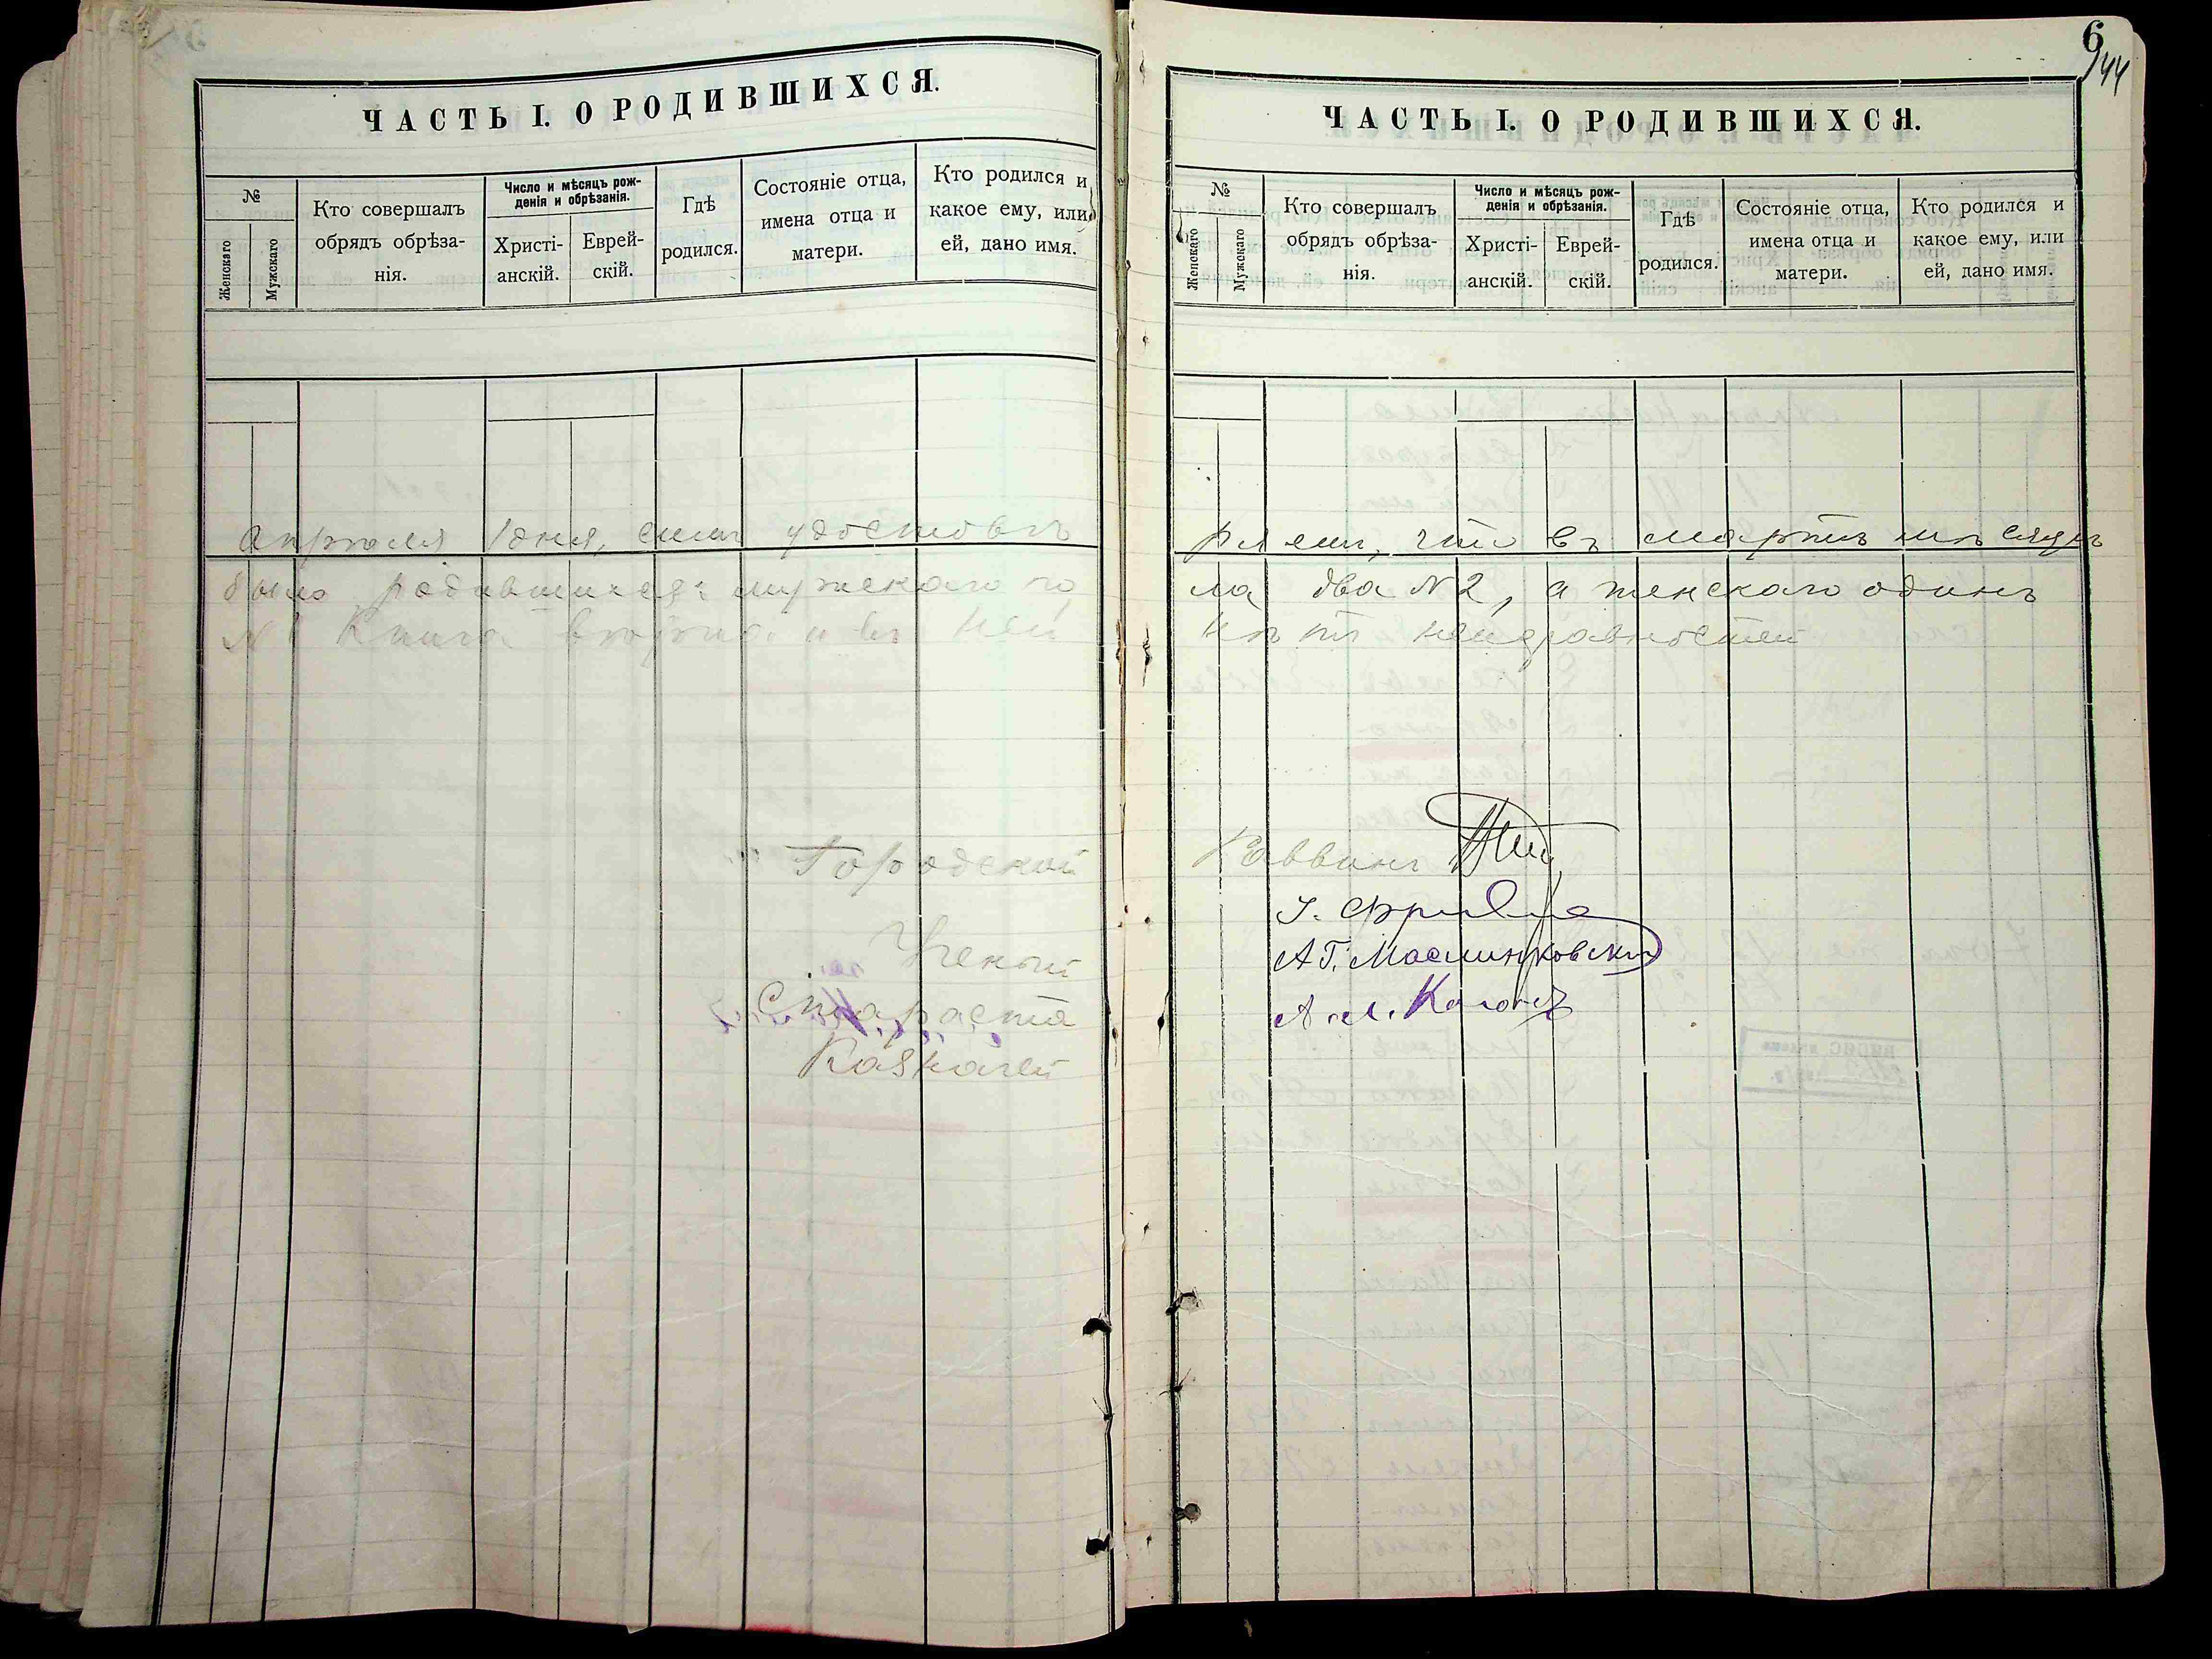 ЧАСТЬ I. О РОДИВШИХСЯ.
№
Женскаго
Мужскаго
Кто совершалъ
обрядъ обрѣза-
нія.
Число и мѣсяцъ рож-
денія и обрѣзанія.
Христі-
анскій.
Еврей-
скій.
Гдѣ
родился.
Состояніе отца,
имена отца и
матери.
Кто родился и
какое ему, или
ей, дано имя.
Апрѣля 1 дня, симъ удостовѣ
было родившихся: мужескаго по
№ 1 Книга ведена и въ ней
Городской
Ученый
Староста
Казначей
6
44
ЧАСТЬ I. О РОДИВШИХСЯ.
№
Женскаго
Мужскаго
Кто совершалъ
обрядъ обрѣза-
нія.
Число и мѣсяцъ рож-
денія и обрѣзанія.
Христі-
анскій.
Еврей-
скій.
Гдѣ
родился.
Состояніе отца,
имена отца и
матери.
Кто родился и
какое ему, или
ей, дано имя.
ряемъ, что въ мартѣ мѣсяцѣ
ла два № 2, а женскаго одинъ
нѣтъ неисправностей
Раввинъ
А. Каганъ